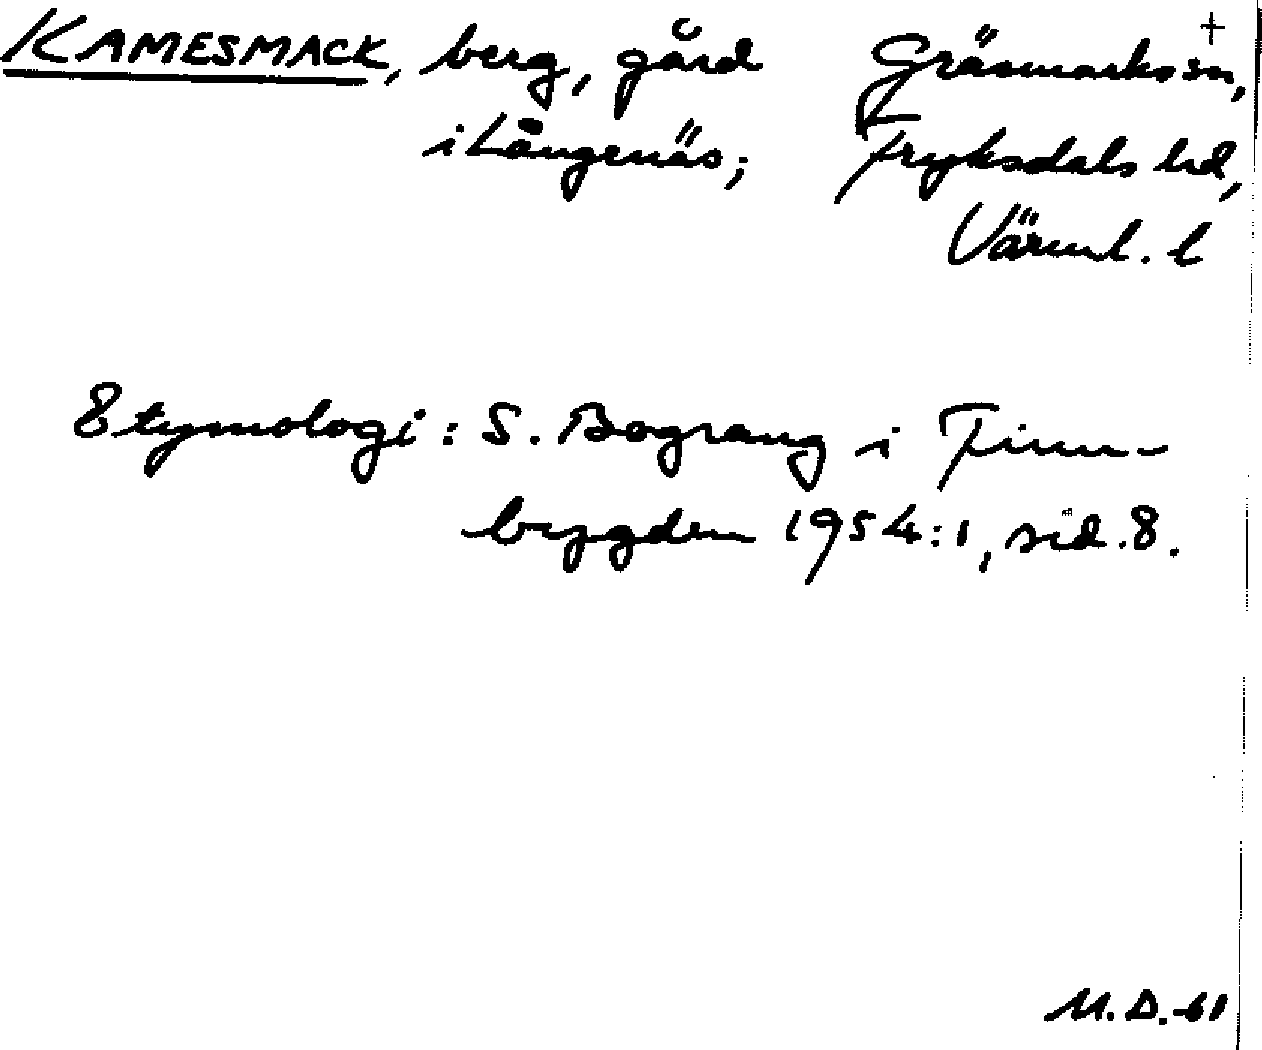 KAMESMACK, berg, gård Gräsmarks sn, +
i Långenäs; Fryksdals hd,
Värml. l
Etymologi: S. Bograng i Finn-
bygden 1954:1, sid. 8.
M.D.-61